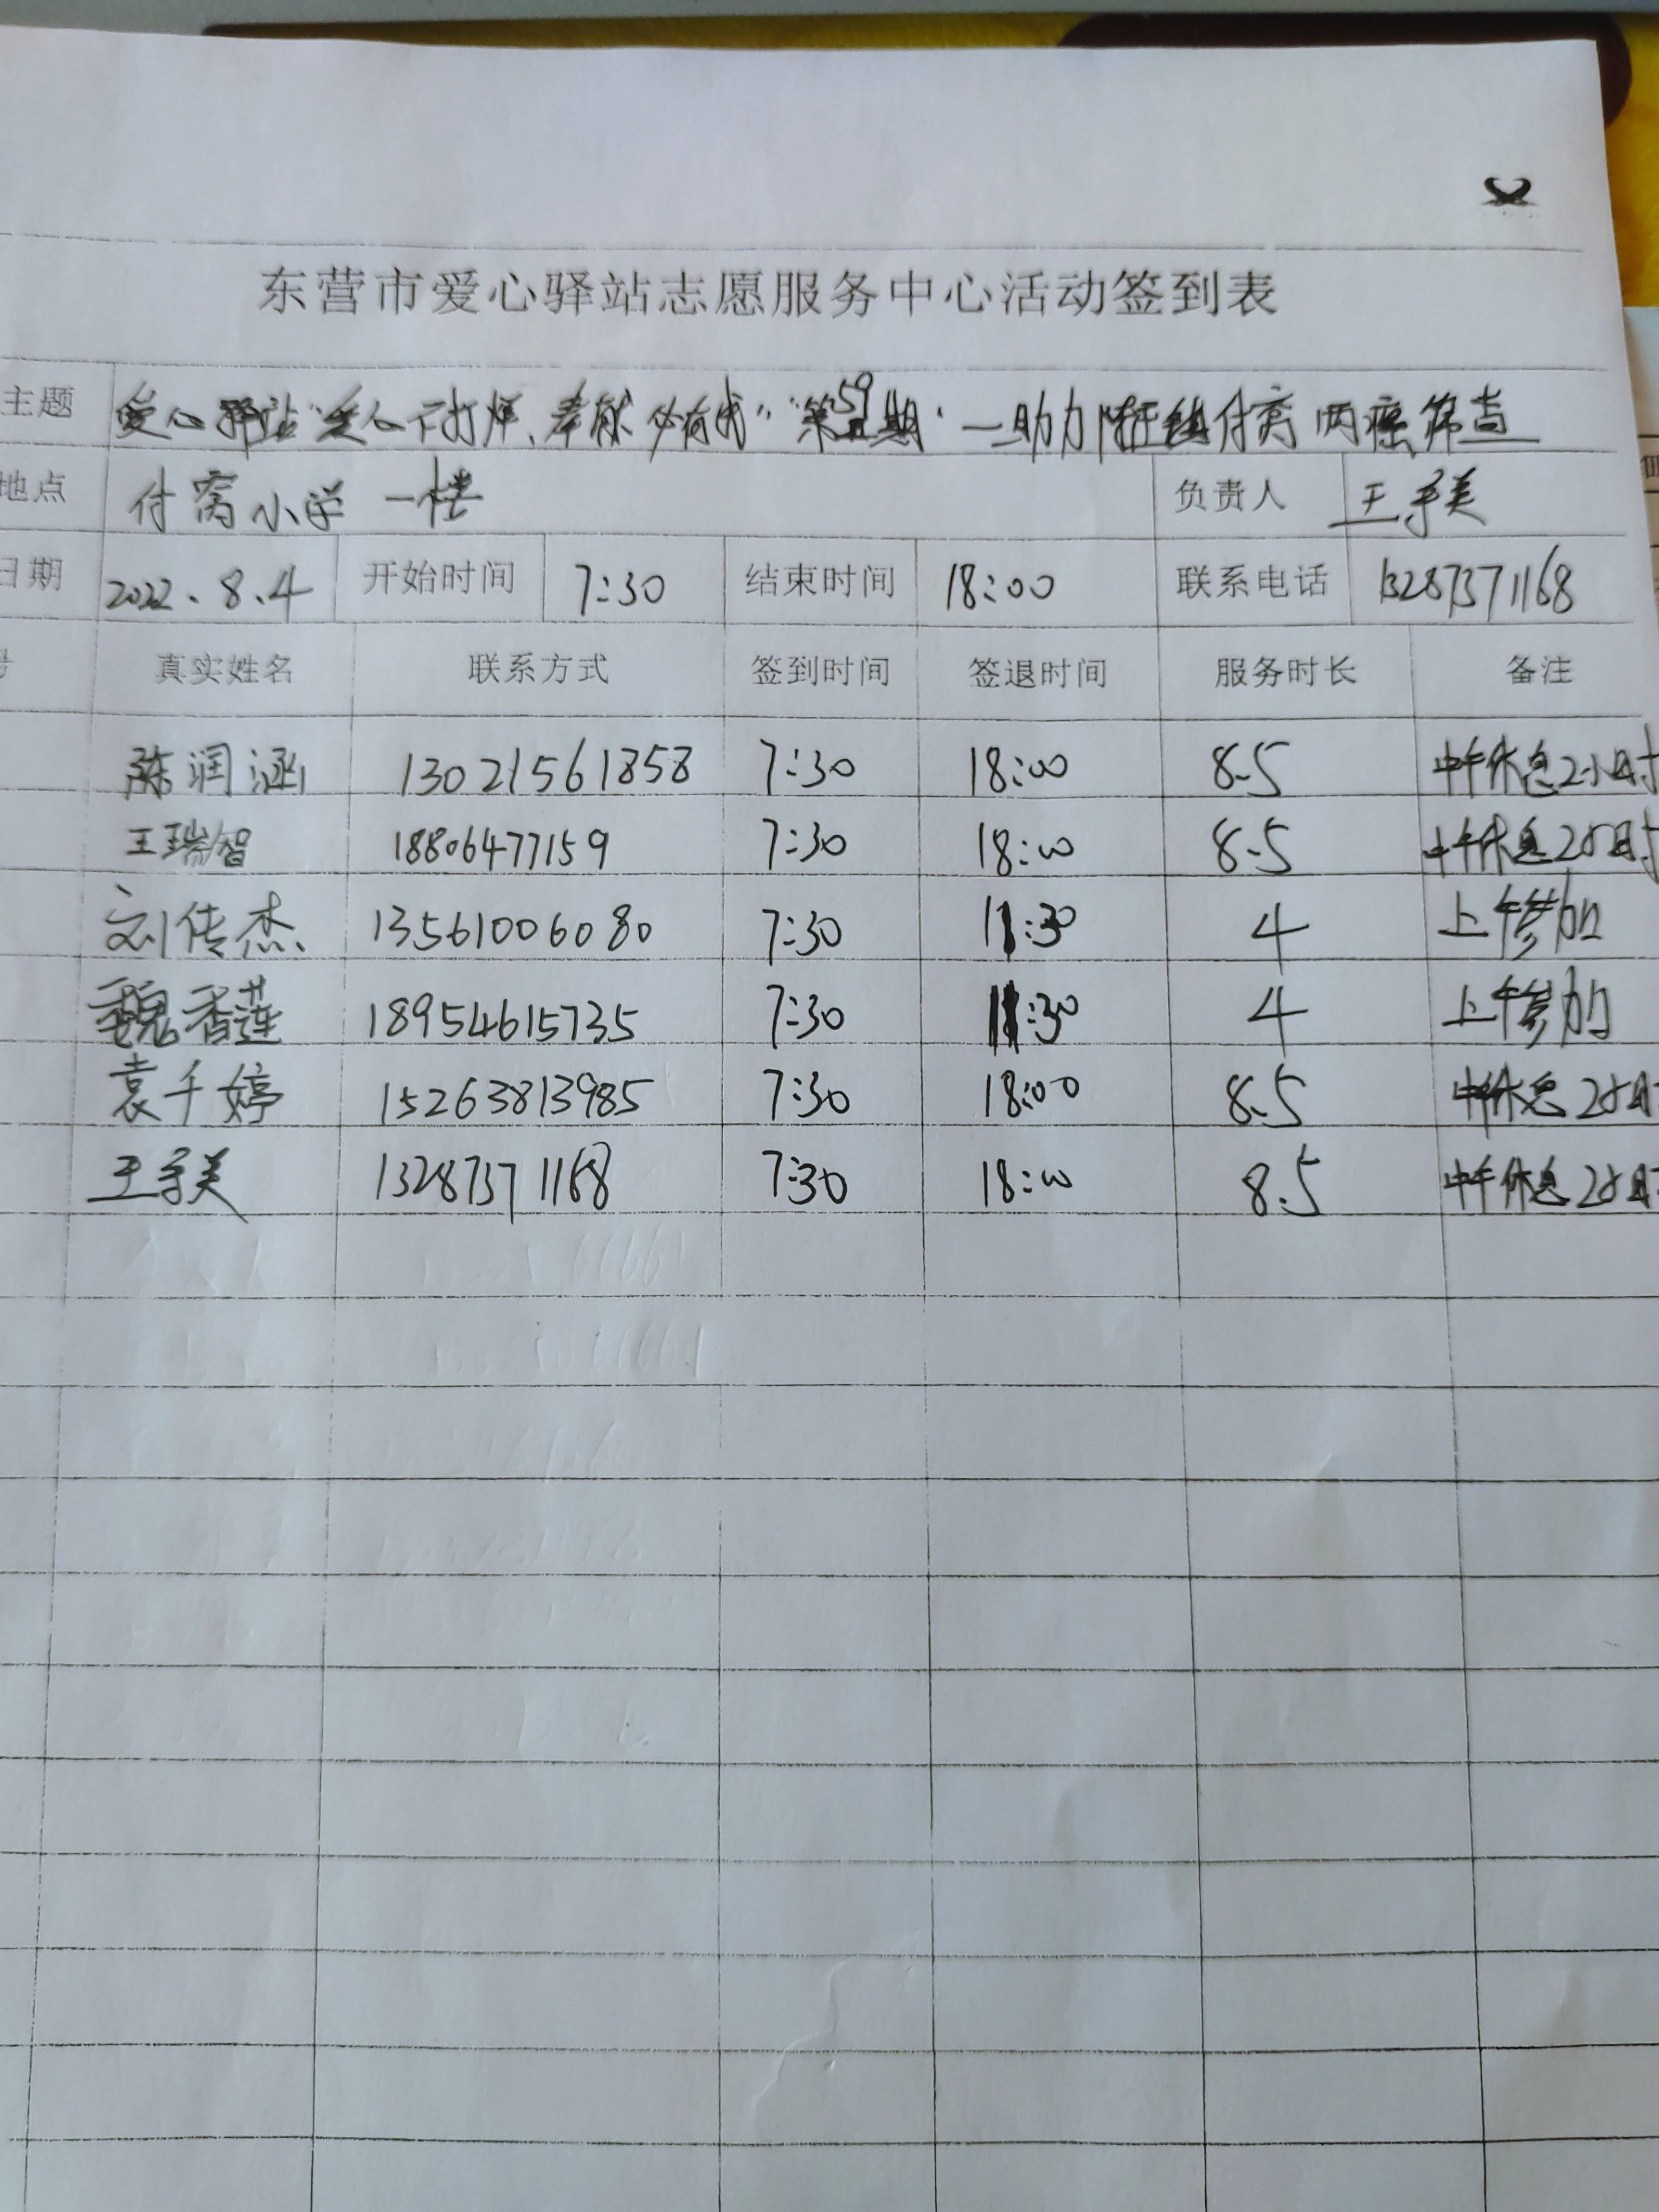 东营市爱心驿站志愿服务中心活动签到表
主题 爱心驿站"爱心不打烊、奉献必有我""第59期"—助力陈庄镇付窝两癌筛查
地点 付窝小学一楼 负责人 王美
日期 2022.8.4 开始时间 7:30 结束时间 18:00 联系电话 13287371168
号 真实姓名 联系方式 签到时间 签退时间 服务时长 备注
陈润涵 13021561858 7:30 18:00 8.5 中午休息2小时
王瑞智 18806477159 7:30 18:00 8.5 中午休息2小时
刘传杰 13561006080 7:30 11:30 4 上午参加
魏香莲 18954615735 7:30 11:30 4 上午参加
袁千婷 15263813985 7:30 18:00 8.5 中午休息2小时
王美 13287371168 7:30 18:00 8.5 中午休息2小时